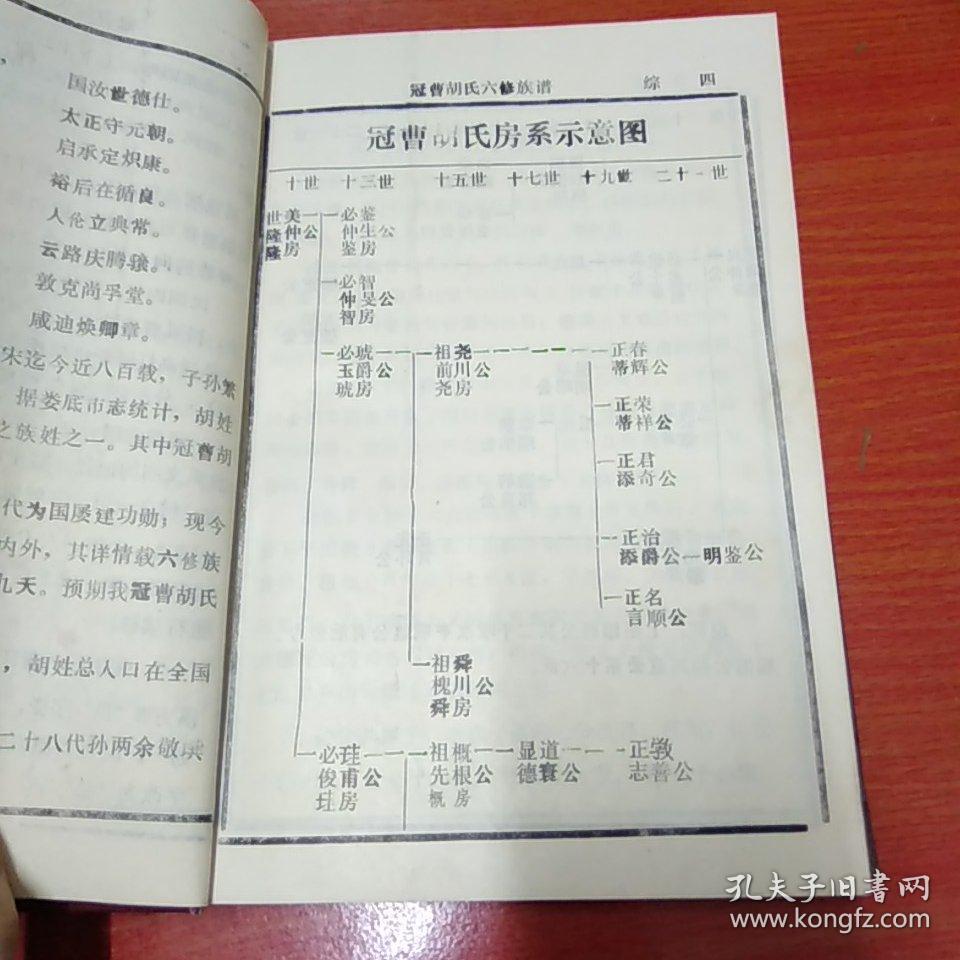 国汝世德仕。
太正守元朝。
启承定炽康。
裕后在循良。
人伦立典常。
云路庆腾骧。
敦克尚孚堂。
咸迪焕卿章。
宋迄今近八百载，子孙繁
据娄底市志统计，胡姓
之族姓之一。其中冠曹胡
代为国屡建功勋；现今
内外，其详情载六修族
九天。预期我冠曹胡氏
，胡姓总人口在全国
二十八代孙两余敬
冠曹胡氏六修族谱 综 四
冠曹胡氏房系示意图
十世 十三世 十五世 十七世 十九世 二十一世
世美 必鉴
隆仲公 仲生公
隆房 鉴房
必智
仲旻公
智房
必琥 祖尧 正春
玉爵公 前川公 蒂辉公
琥房 尧房
正荣
蒂祥公
正君
添奇公
正治
添爵公 明鉴公
正名
言顺公
祖舜
槐川公
舜房
必珪 祖概 显道 正敩
俊甫公 先根公 德寰公 志善公
珪房 概房
孔夫子旧书网
www.kongfz.com